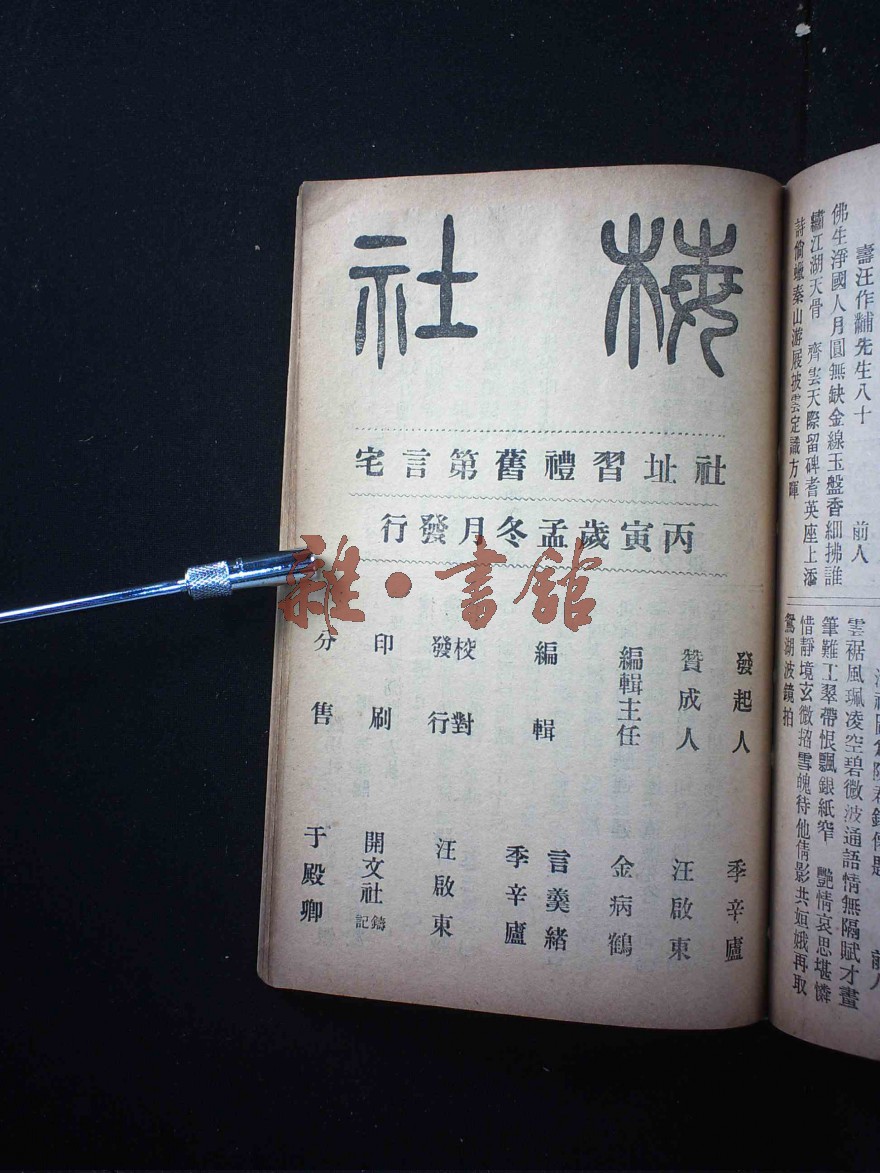 壽汪作黼先生八十
前人
佛生淨國人月圓無缺金線玉盤香細拂誰
繡江湖天骨　齊雲天際留碑耆英座上添
詩偷蠟秦山游屐披雲定識方暉
前人
雲裾風珮凌空碧微波通語情無隔賦才畫
筆難工翠帶恨飄銀紙窄　艷情哀思堪憐
惜靜境玄微招雪魄待他倩影共姮娥再取
鴛湖波鏡拍
梅社
社址習禮舊第言宅
丙寅歲孟冬月發行
發起人　季辛廬
贊成人　汪啟東
編輯主任　金病鶴
編輯　言羹緒
季辛廬
校對
發行　汪啟東
印刷　開文社鑄記
分售　于殿卿
雜·書館